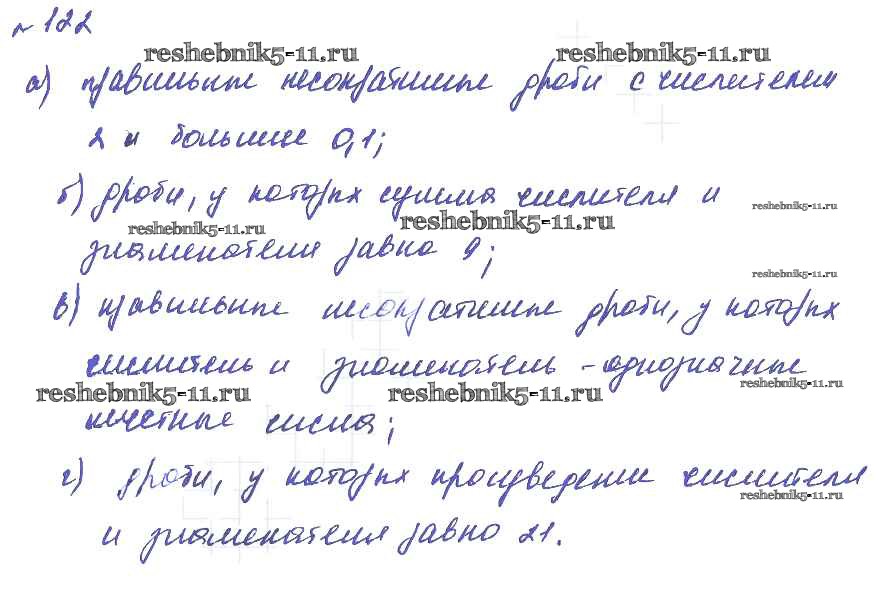 № 122
reshebnik5-11.ru reshebnik5-11.ru
а) правильные несократимые дроби с числителем
2 и большие 0,1;
б) дроби, у которых сумма числителя и
reshebnik5-11.ru
reshebnik5-11.ru reshebnik5-11.ru
знаменателя равно 9;
reshebnik5-11.ru
в) правильные несократимые дроби, у которых
числитель и знаменатель - однозначные
reshebnik5-11.ru reshebnik5-11.ru reshebnik5-11.ru
нечетные числа;
г) дроби, у которых произведение числителя
reshebnik5-11.ru
и знаменателя равно 21.